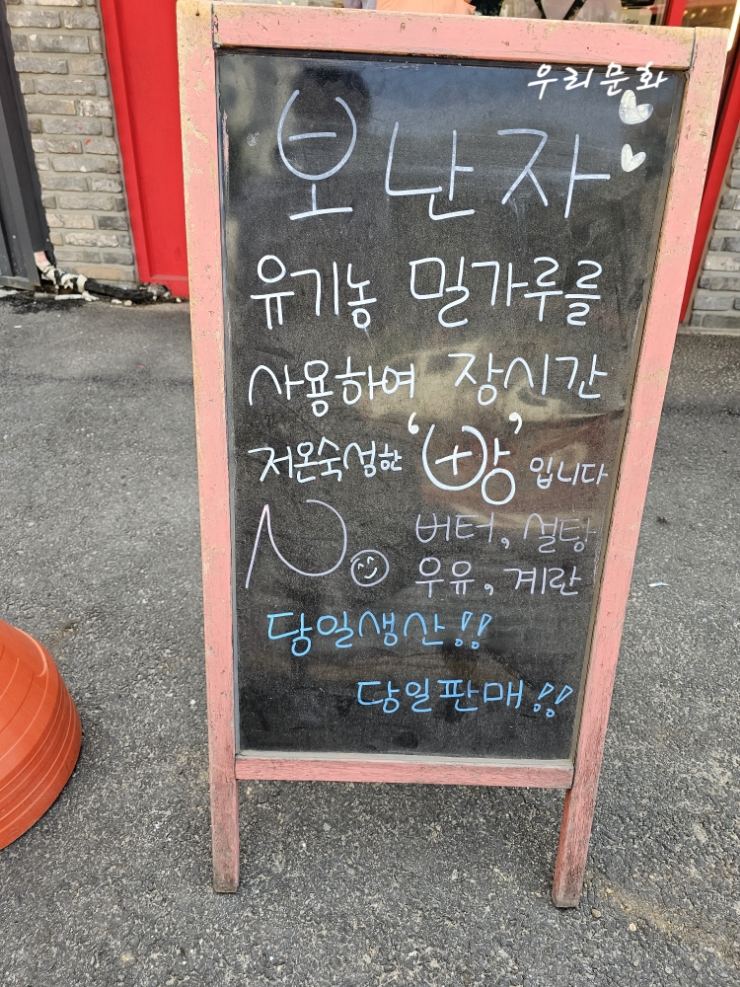 우리문화
보난자
유기농 밀가루를
사용하여 장시간
저온숙성한 '빵' 입니다
No 버터, 설탕
우유, 계란
당일생산!!
당일판매!!